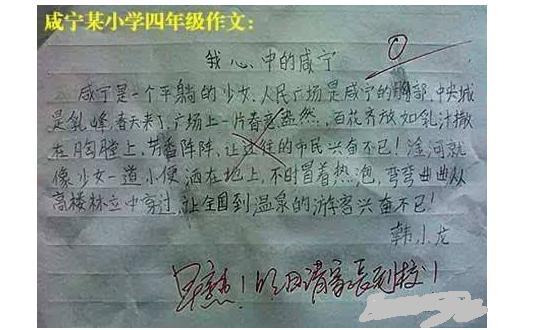 咸宁某小学四年级作文:
我心中的咸宁
咸宁是一个平躺的少女、人民广场是咸宁的胸部、中央城
是乳峰、春天来了、广场上一片春意盎然、百花齐放如乳汁撒
在胸膛上、芳香阵阵、让过往的市民兴奋不已!淦河就
像少女一道小便洒在地上,不时冒着热泡,弯弯曲曲从
高楼林立中穿过,让全国到温泉的游客兴奋不已!
韩小龙
早熟!明日请家长到校!